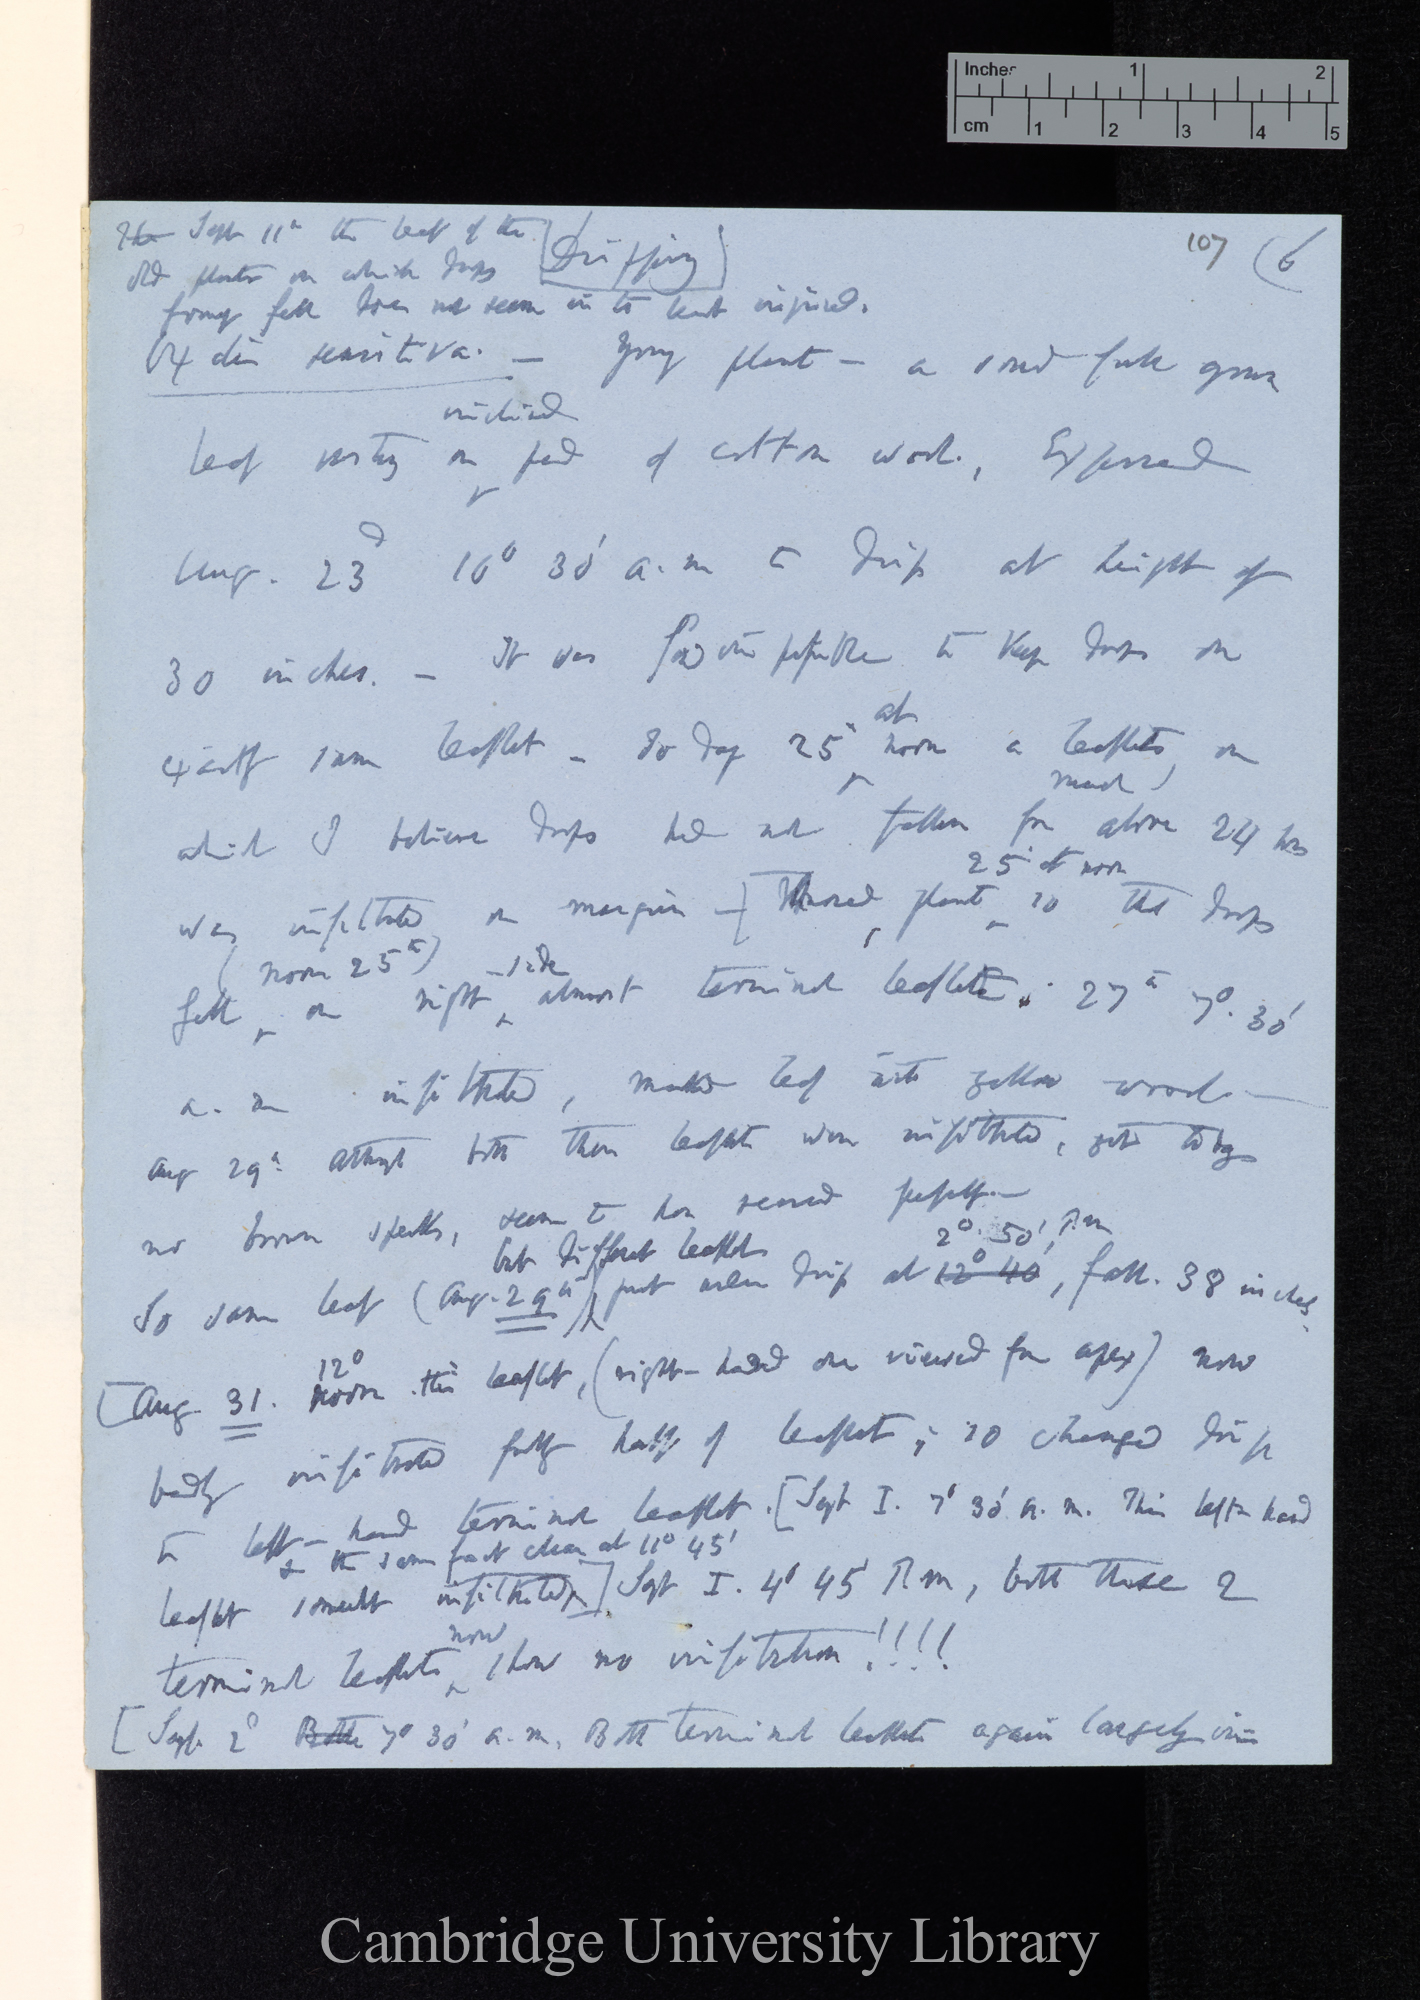 Inches 1 2
cm 1 2 3 4 5
107 (6
The Sept 11th the leaf of the [Dripping]
old plants on which drops
formerly fell does not seem in the least injured.
Oxalis sensitiva. — Young plant — a
leaf resting on inclined pad of cotton wool, Exposed
Aug. 23d 10° 30' a.m to drip at height of
30 inches. — It was impossible to keep drops on
exactly same leaflet — To day 25th at noon a leaflets, on
which I believe drops had not fallen for much above 24 hrs
was infiltrated on margin — moved plant 25th at noon so that drops
fell (noon 25th) on right side almost terminal leaflet. 27th 7°. 30'
a. m infiltrated, leaf into yellow wood. —
Aug 29th although both these leaflets were infiltrated, yet to day
no brown specks, seem to have
So same leaf (Aug. 29th) but different leaflet put under drip at 12° 40' 2° 50' P.m, fall. 38 inches.
[Aug. 31. noon 12° this leaflet, (right-hand one viewed from apex) now
badly infiltrated fully half of leaflet; so changed drip
to left-hand terminal leaflet. [Sept I. 7° 30' a. m. This left-hand
leaflet somewhat infiltrated & the same fact clear at 11° 45'] Sept I. 4° 45' P.m, both these 2
terminal leaflets now show no infiltration!!!!
[Sept 2d Both 7° 30' a. m. Both terminal leaflets again largely in
Cambridge University Library